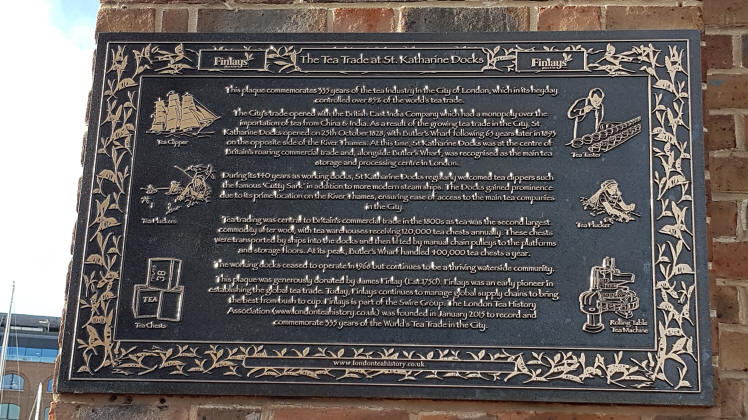 Finlays
The Tea Trade at St. Katharine Docks
Finlays
This plaque commemorates 335 years of the tea industry in the City of London, which in its heyday
controlled over 85% of the world's tea trade.
The City's trade opened with the British East India Company which had a monopoly over the
importation of tea from China & India. As a result of the growing tea trade in the City, St
Katharine Docks opened on 25th October 1828, with Butler's Wharf following 65 years later in 1893
on the opposite side of the River Thames. At this time, St Katharine Docks was at the centre of
Britain's roaring commercial trade and, alongside Butler's Wharf, was recognised as the main tea
storage and processing centre in London.
During its 140 years as working docks, St Katharine Docks regularly welcomed tea clippers such
the famous 'Cutty Sark' in addition to more modern steam ships. The Docks gained prominence
due to its prime location on the River Thames, ensuring ease of access to the main tea companies
in the City.
Tea trading was central to Britain's commercial trade in the 1800s as tea was the second largest
commodity after wool, with tea warehouses receiving 120,000 tea chests annually. These chests
were transported by ships into the docks and then lifted by manual chain pulleys to the platforms
and storage floors. At its peak, Butler's Wharf handled 400,000 tea chests a year.
The working docks ceased to operate in 1968 but continues to be a thriving waterside community.
This plaque was generously donated by James Finlay (Est.1750). Finlays was an early pioneer in
establishing the global tea trade. Today, Finlays continues to manage global supply chains to bring
the best from bush to cup. Finlays is part of the Swire Group. The London Tea History
Association (www.londonteahistory.co.uk) was founded in January 2015 to record and
commemorate 335 years of the World's Tea Trade in the City.
Tea Clipper
Tea Pluckers
38
TEA
Tea Chests
Tea Taster
Tea Plucker
Rolling Table
Tea Machine
www.londonteahistory.co.uk